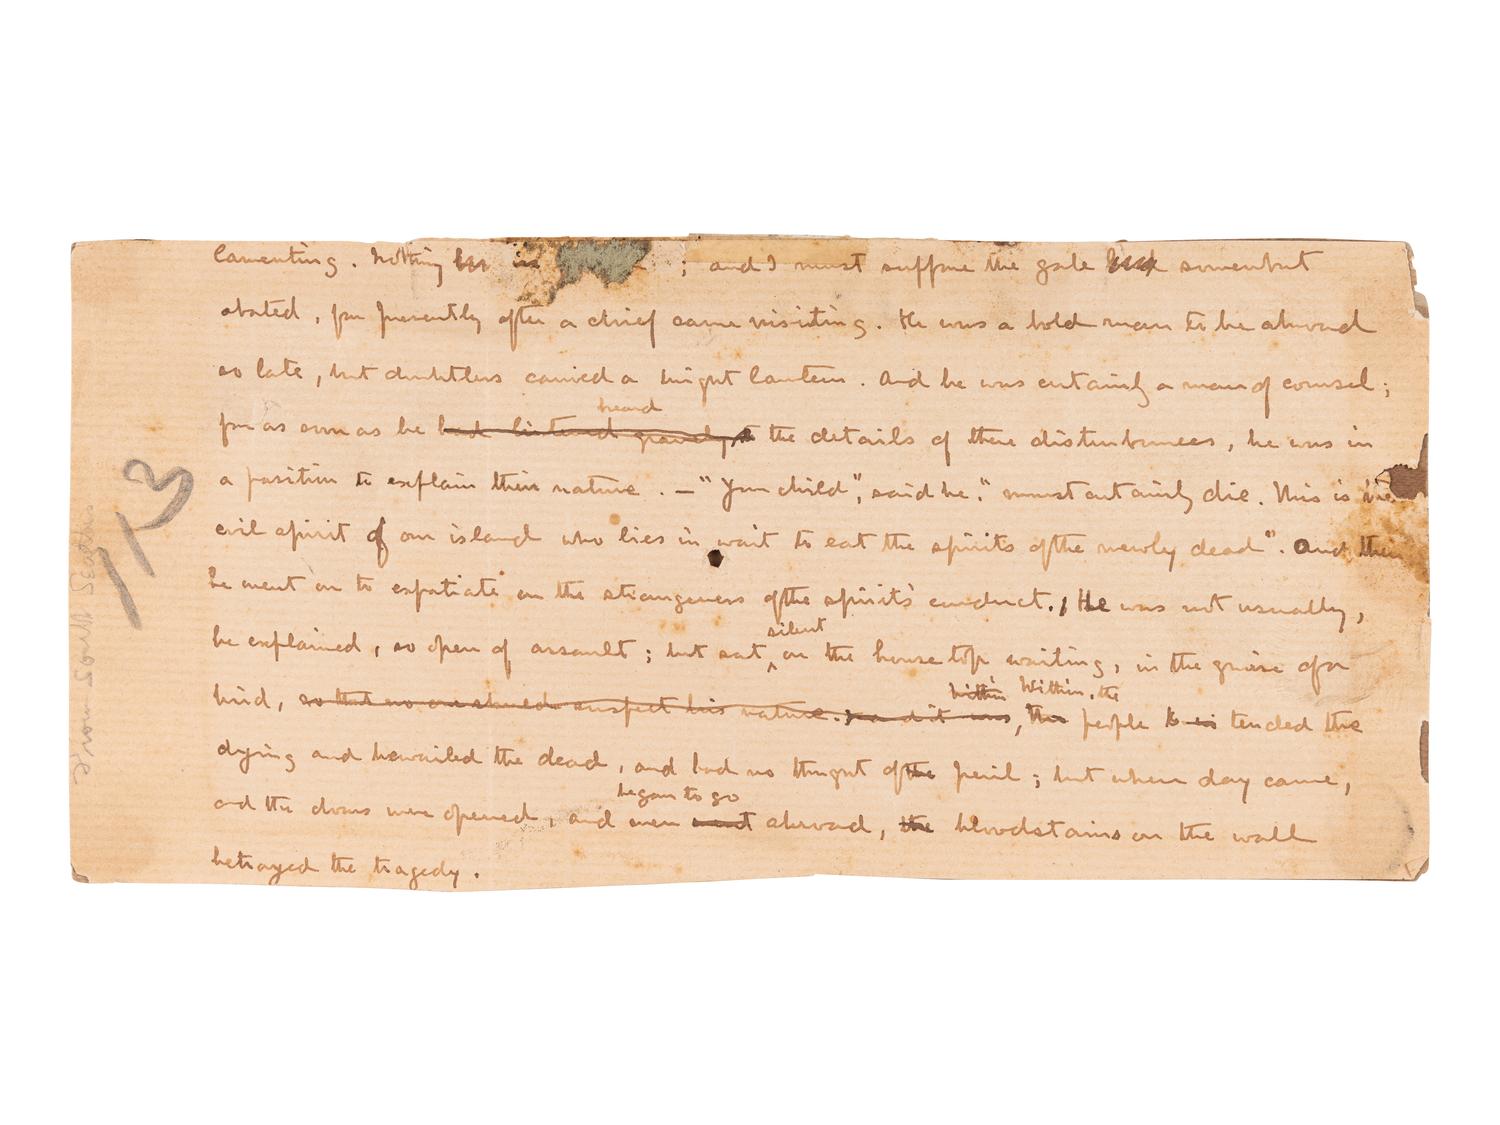 lamenting. Nothing in ; and I must suppose the gale had somewhat
abated, for presently after a chief came visiting. He was a bold man to be abroad
so late, but doubtless carried a bright lantern. And he was certainly a man of counsel;
heard
for as soon as he had listened gravely to the details of these disturbances, he was in
a position to explain their nature. — "Your child", said he, "must certainly die. This is the
evil spirit of our island who lies in wait to eat the spirits of the newly dead". And then
he went on to expatiate on the strangeness of the spirit's conduct. He was not usually,
silent
he explained, so open of assault; but sat ^ on the house top waiting, in the guise of a
within Within, the
bird, so that no one should suspect his nature. and it was, the people tended the
dying and bewailed the dead, and had no thought of the peril; but when day came,
began to go
and the doors were opened, and men went abroad, the bloodstains on the wall
betrayed the tragedy.
13